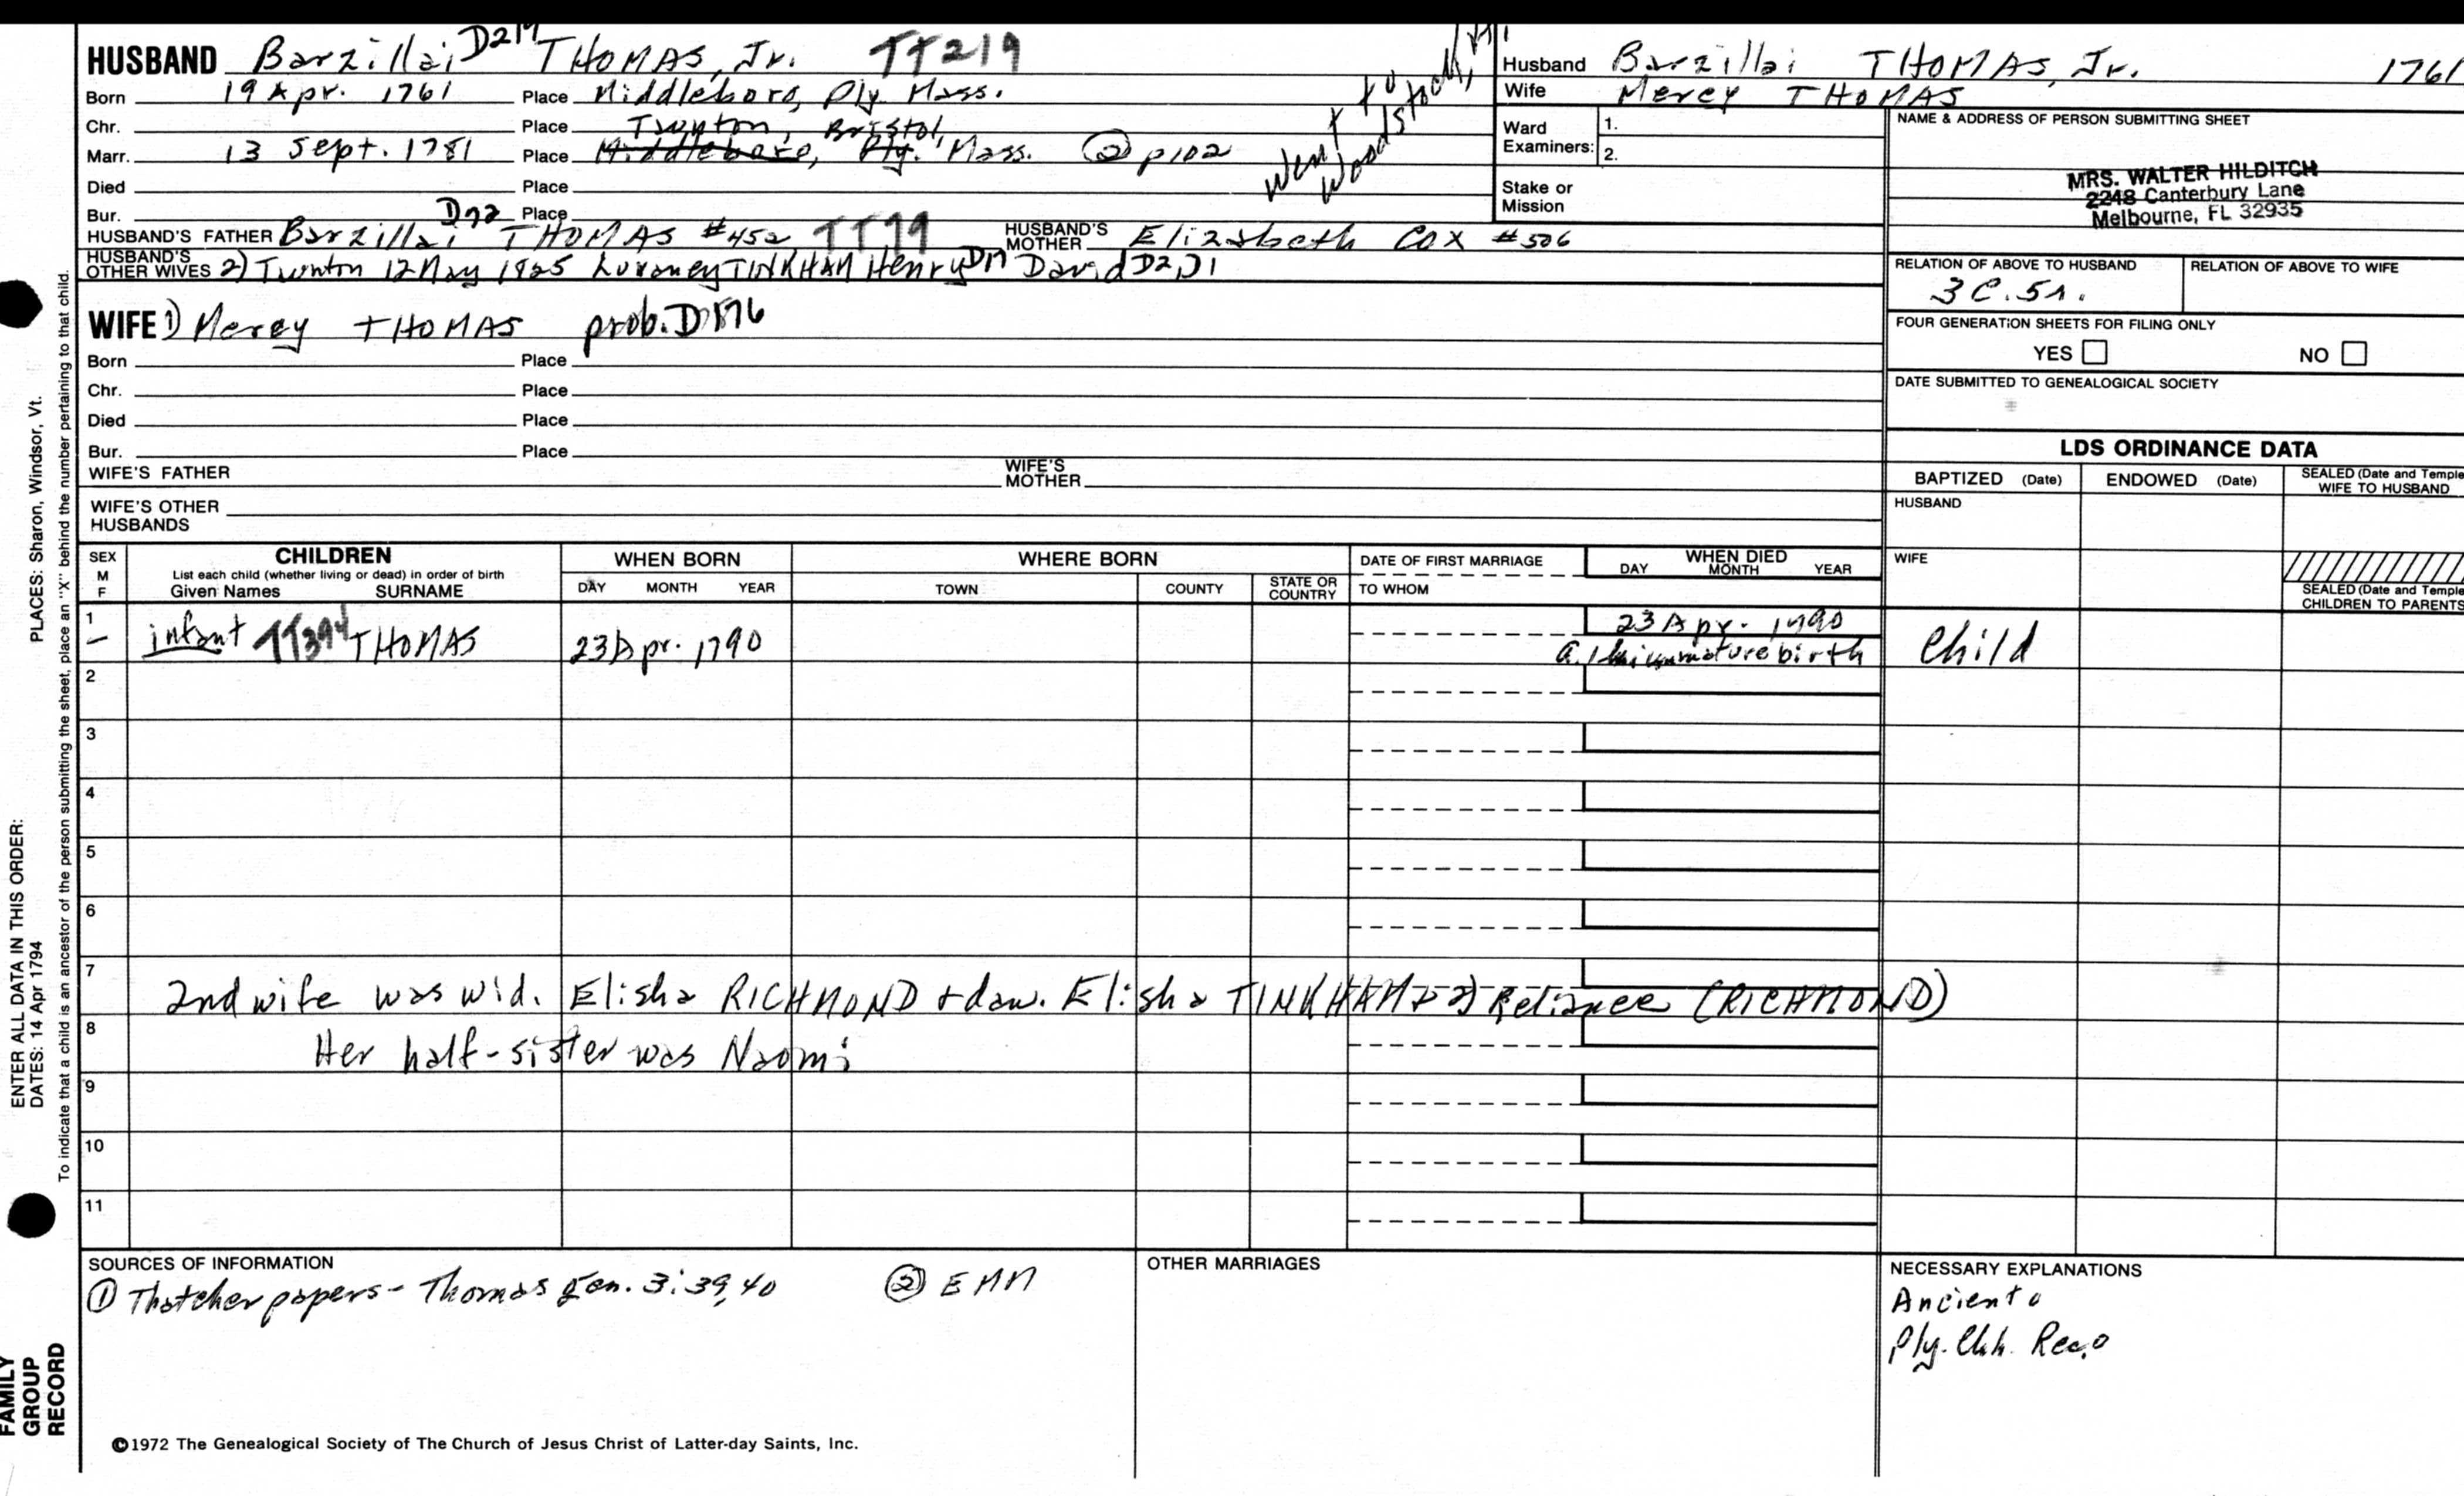 HUSBAND Barzillai D219 THOMAS, Jr. TT219
Born 19 Apr. 1761 Place Middleboro, Ply. Mass.
Chr. Place Taunton, Bristol,
Marr. 13 Sept. 1781 Place Middleboro, Ply. Mass. ② p102
Died Place
Bur. Place
went to Woodstock,
HUSBAND'S FATHER Barzillai D72 THOMAS #452 TT79 HUSBAND'S MOTHER Elizabeth COX #506
HUSBAND'S OTHER WIVES 2) Taunton 12 May 1825 Luraney TINKHAM Henry David D2, D1
WIFE 1) Mercy THOMAS prob.
Born Place
Chr. Place
Died Place
Bur. Place
WIFE'S FATHER WIFE'S MOTHER
WIFE'S OTHER HUSBANDS
Husband Barzillai THOMAS, Jr. 1761
Wife Mercy THOMAS
Ward Examiners: 1.
2.
Stake or Mission
NAME & ADDRESS OF PERSON SUBMITTING SHEET
MRS. WALTER HILDITCH
2248 Canterbury Lane
Melbourne, FL 32935
RELATION OF ABOVE TO HUSBAND RELATION OF ABOVE TO WIFE
3 C. 5r.
FOUR GENERATION SHEETS FOR FILING ONLY
YES NO
DATE SUBMITTED TO GENEALOGICAL SOCIETY
LDS ORDINANCE DATA
BAPTIZED (Date) ENDOWED (Date) SEALED (Date and Temple
WIFE TO HUSBAND
HUSBAND
WIFE
SEALED (Date and Temple
CHILDREN TO PARENTS
SEX M F CHILDREN WHEN BORN WHERE BORN DATE OF FIRST MARRIAGE WHEN DIED
List each child (whether living or dead) in order of birth
Given Names SURNAME DAY MONTH YEAR TOWN COUNTY STATE OR COUNTRY TO WHOM DAY MONTH YEAR
1 infant TT394 THOMAS 23 Apr. 1790 23 Apr. 1790
immature birth Child
2
3
4
5
6
7
2nd wife was wid. Elisha RICHMOND + dau. Elisha TINKHAM + 2) Reliance (RICHMOND)
8
Her half-sister was Naomi
9
10
11
SOURCES OF INFORMATION
① Thatcher papers - Thomas gen. 3:39,40 ② EMM
OTHER MARRIAGES
NECESSARY EXPLANATIONS
Ancient
Ply. Chh. Rec.
©1972 The Genealogical Society of The Church of Jesus Christ of Latter-day Saints, Inc.
ENTER ALL DATA IN THIS ORDER:
DATES: 14 Apr 1794 PLACES: Sharon, Windsor, Vt.
To indicate that a child is an ancestor of the person submitting the sheet, place an "X" behind the number pertaining to that child.
FAMILY
GROUP
RECORD